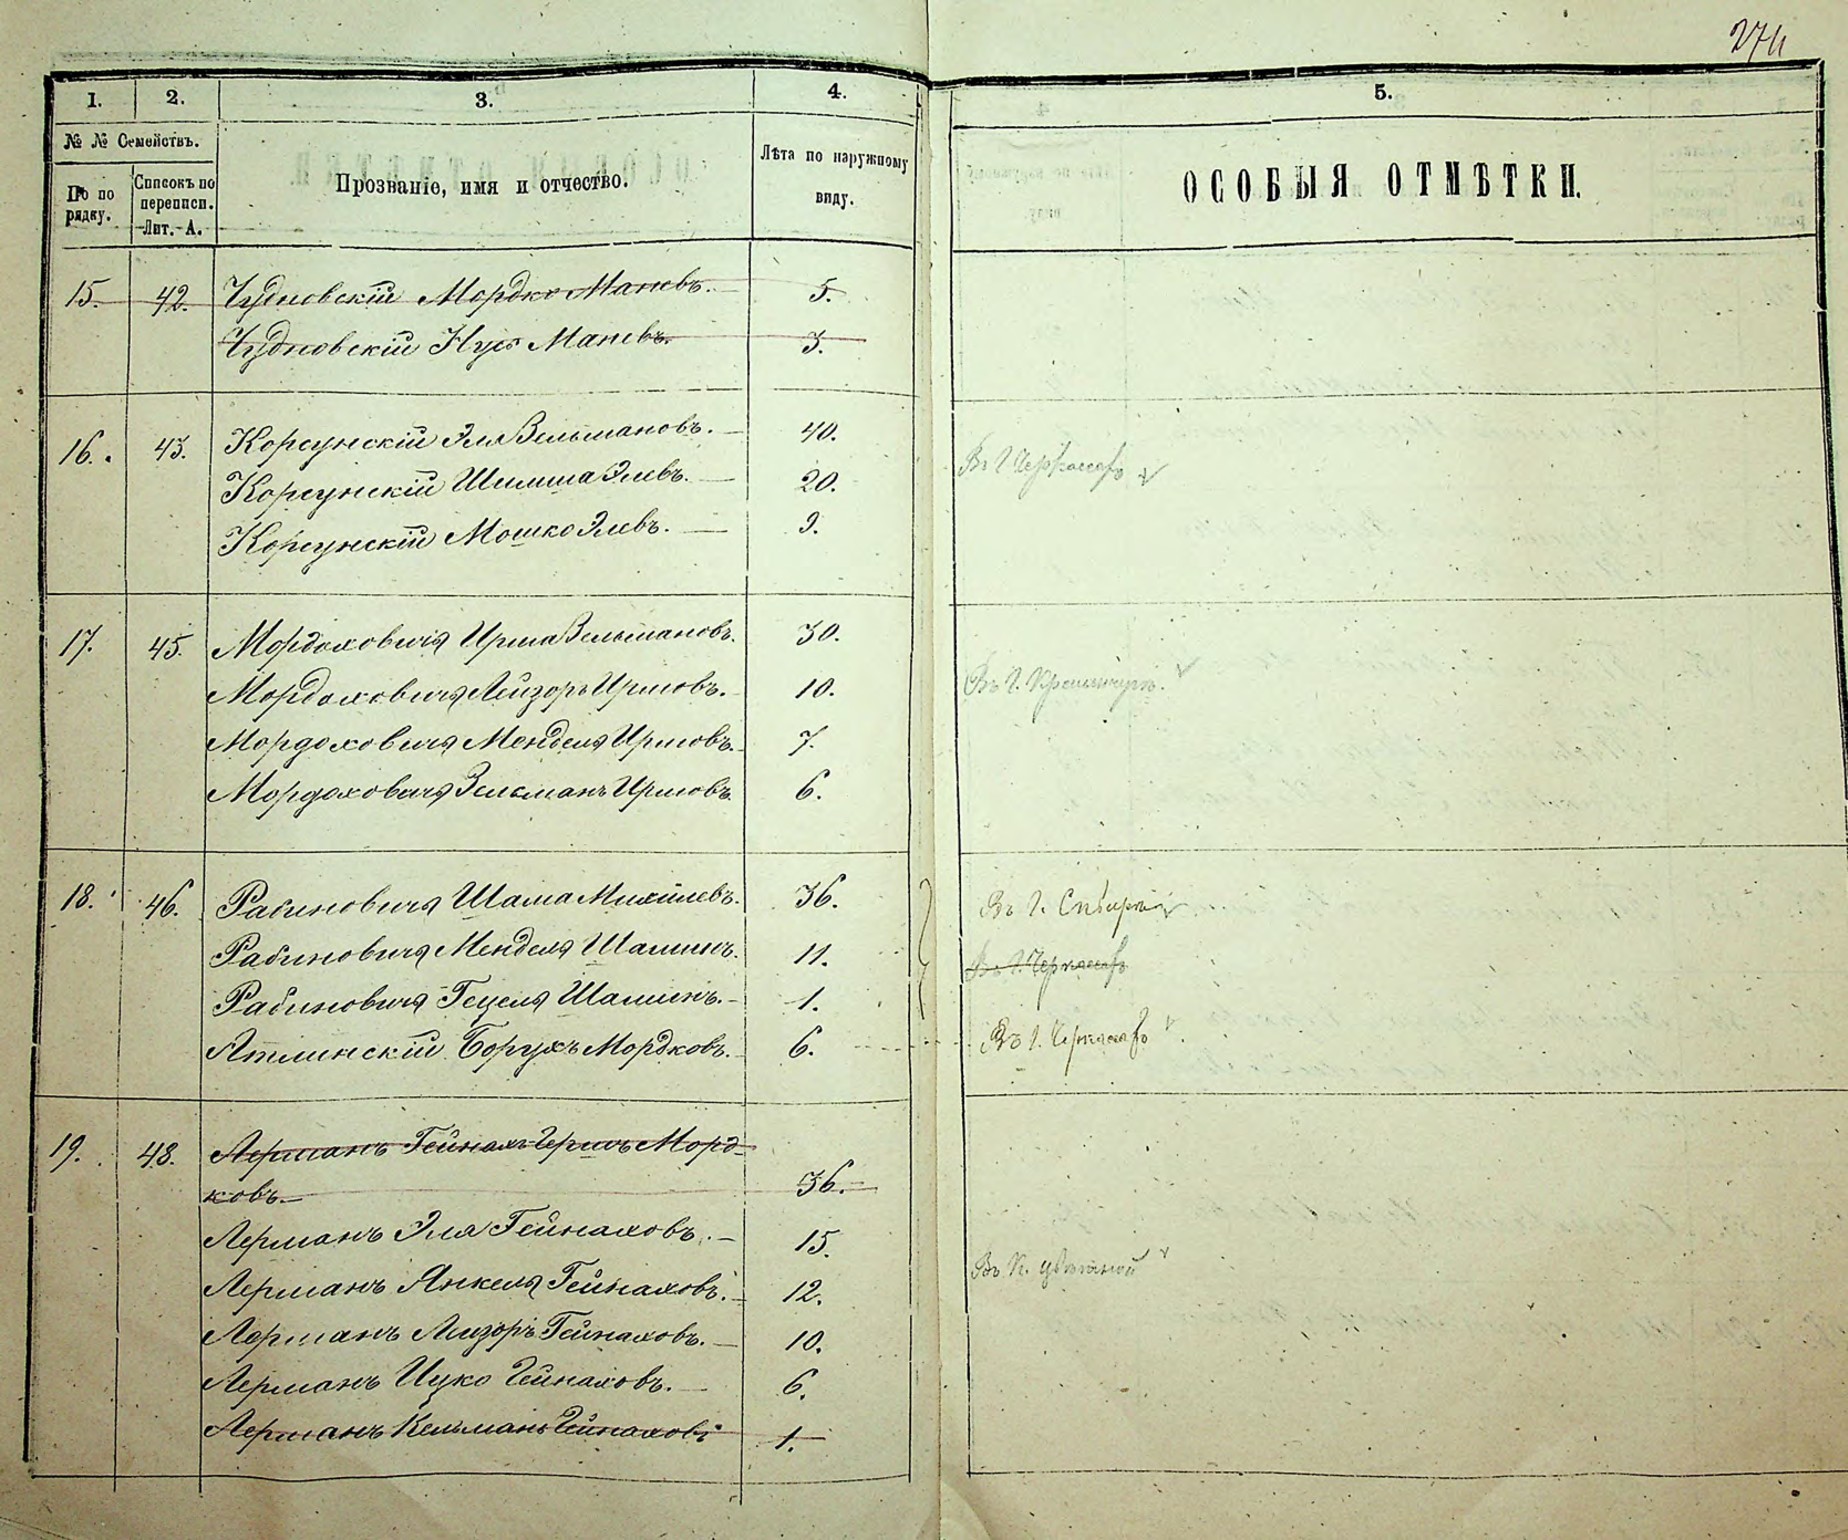 274
1. 2. 3. 4. 5.
№ № Семействъ.
По по рядку.
Списокъ по переписи. Лит. А.
Прозваніе, имя и отчество.
Лѣта по наружному виду.
ОСОБЫЯ ОТМѢТКИ.
15. 42. Чудновскій Мордко Маневъ. 5.
Чудновскій Нусъ Маневъ. 3.
16. 43. Корсунскій Эля Зельмановъ. 40.
Въ г. Черкассахъ
Корсунскій Шлиома Элевъ. 20.
Корсунскій Мошко Элевъ. 9.
17. 45. Мордоховичъ Ирша Зельмановъ. 30.
Въ г. Кременчугѣ.
Мордоховичъ Лейзоръ Иршовъ. 10.
Мордоховичъ Мендель Иршовъ. 7.
Мордоховичъ Зельманъ Иршовъ. 6.
18. 46. Рабиновичъ Шама Михилевъ. 36. Въ г. Сибири
Рабиновичъ Мендель Шаминъ. 11. Въ г. Черкассахъ
Рабиновичъ Гецель Шаминъ. 1.
Ятлинскій Борухъ Мордковъ. 6. Въ г. Черкассахъ
19. 48. Лерманъ Гейнахъ Гершъ Морд-
ковъ. 36.
Лерманъ Эля Гейнаховъ. 15.
Лерманъ Янкель Гейнаховъ. 12.
Въ к. Цвѣтной
Лерманъ Лизоръ Гейнаховъ. 10.
Лерманъ Ицко Гейнаховъ. 6.
Лерманъ Кельманъ Гейнаховъ 1.